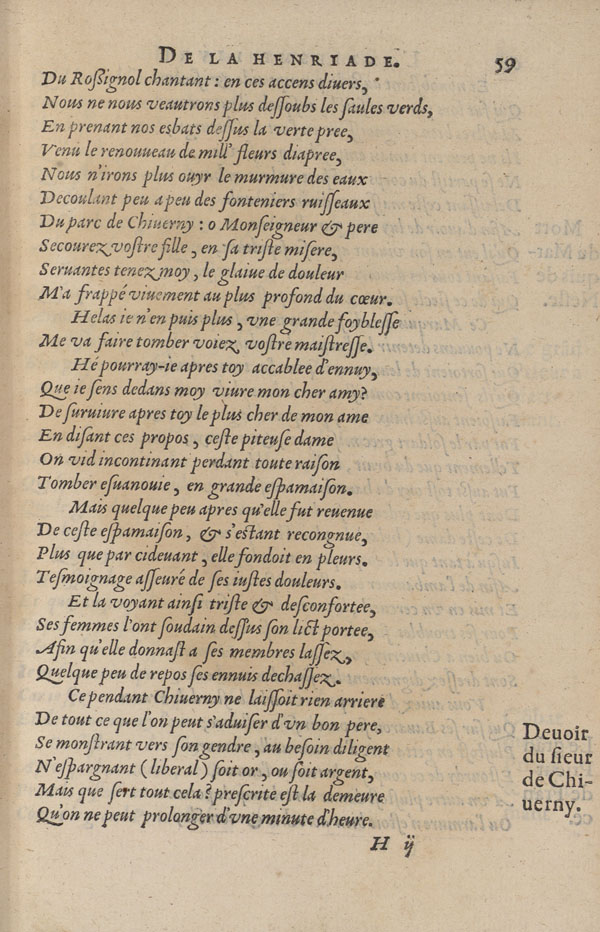 DE LA HENRIADE. 59
Du Roſſignol chantant : en ces accens diuers,
Nous ne nous veautrons plus deſſoubs les ſaules verds,
En prenant nos esbats deſſus la verte pree,
Venu le renouueau de mill' fleurs diapree,
Nous n'irons plus ouyr le murmure des eaux
Decoulant peu a peu des fonteniers ruiſſeaux
Du parc de Chiuerny : o Monſeigneur & pere
Secourez voſtre fille, en ſa triſte miſere,
Seruantes tenez moy, le glaiue de douleur
M'a frappé viuement au plus profond du cœur.
Helas ie n'en puis plus, vne grande foybleſſe
Me va faire tomber voiez voſtre maiſtreſſe.
Hé pourray-ie apres toy accablee d'ennuy,
Que ie ſens dedans moy viure mon cher amy?
De ſuruiure apres toy le plus cher de mon ame
En diſant ces propos, ceſte piteuſe dame
On vid incontinant perdant toute raiſon
Tomber eſuanouie, en grande eſpamaiſon.
Mais quelque peu apres qu'elle fut reuenue
De ceſte eſpamaiſon, & s'eſtant recongnue,
Plus que par cideuant, elle fondoit en pleurs.
Teſmoignage aſſeuré de ſes iuſtes douleurs.
Et la voyant ainſi triſte & desconfortee,
Ses femmes l'ont ſoudain deſſus ſon lict portee,
Afin qu'elle donnaſt a ſes membres laſſez,
Quelque peu de repos ſes ennuis dechaſſez.
Cependant Chiuerny ne laiſſoit rien arriere
De tout ce que l'on peut s'aduiſer d'vn bon pere,
Se monſtrant vers ſon gendre, au beſoin diligent
N'eſpargnant (liberal) ſoit or, ou ſoit argent,
Mais que ſert tout cela? preſcrite eſt la demeure
Qu'on ne peut prolonger d'vne minute d'heure.
Deuoir
du ſieur
de Chi-
uerny.
H ij